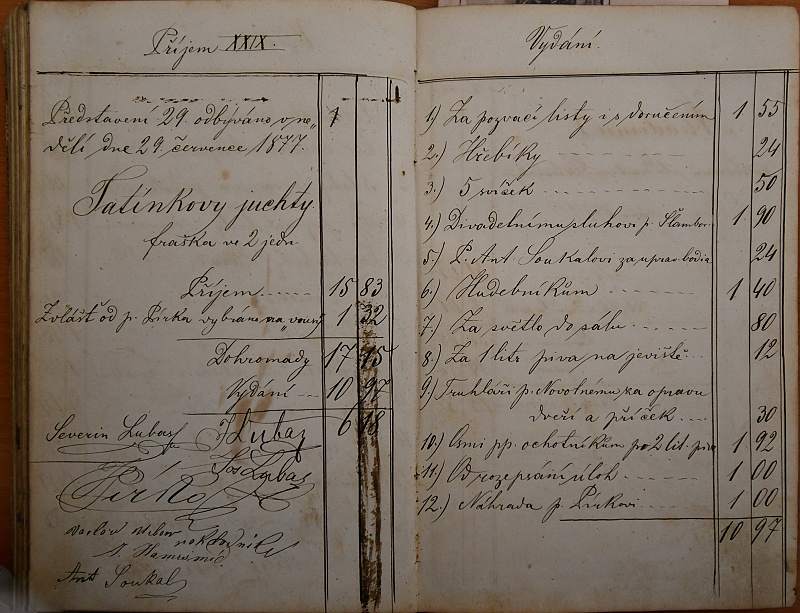 Příjem XXIX.
Představení 29. odbýváno v ne„
děli dne 29. července 1877.
Tatínkovy juchty.
fraška ve 2 jedn.
Příjem 15 83
Zvlášť od p. Pírka vybráno na „vousy 1 32
Dohromady 17 15
Vydání 10 97
6 18
Severin Lubas J Lubas
Jos Lubas
Pírko
Ant Soukal
Vydání.
1.) Za pozvací listy i s doručením 1 55
2.) Hřebíky 24
3.) 5 svíček 50
4.) Divadelnímu sluhovi p. Šlambor. 1 90
5.) P. Ant Soukalovi za uprav. lodia 24
6.) Hudebníkům 1 40
7.) Za světlo do sálu 80
8.) Za 1 litr piva na jeviště 12
9.) Truhláři p. Novotnému za opravu
dveří a příček 30
10.) Osmi pp. ochotníkům po 2 lit. piva 1 92
11.) Od rozepsání úloh 1 00
12.) Náhrada p. Pírkovi 1 00
10 97